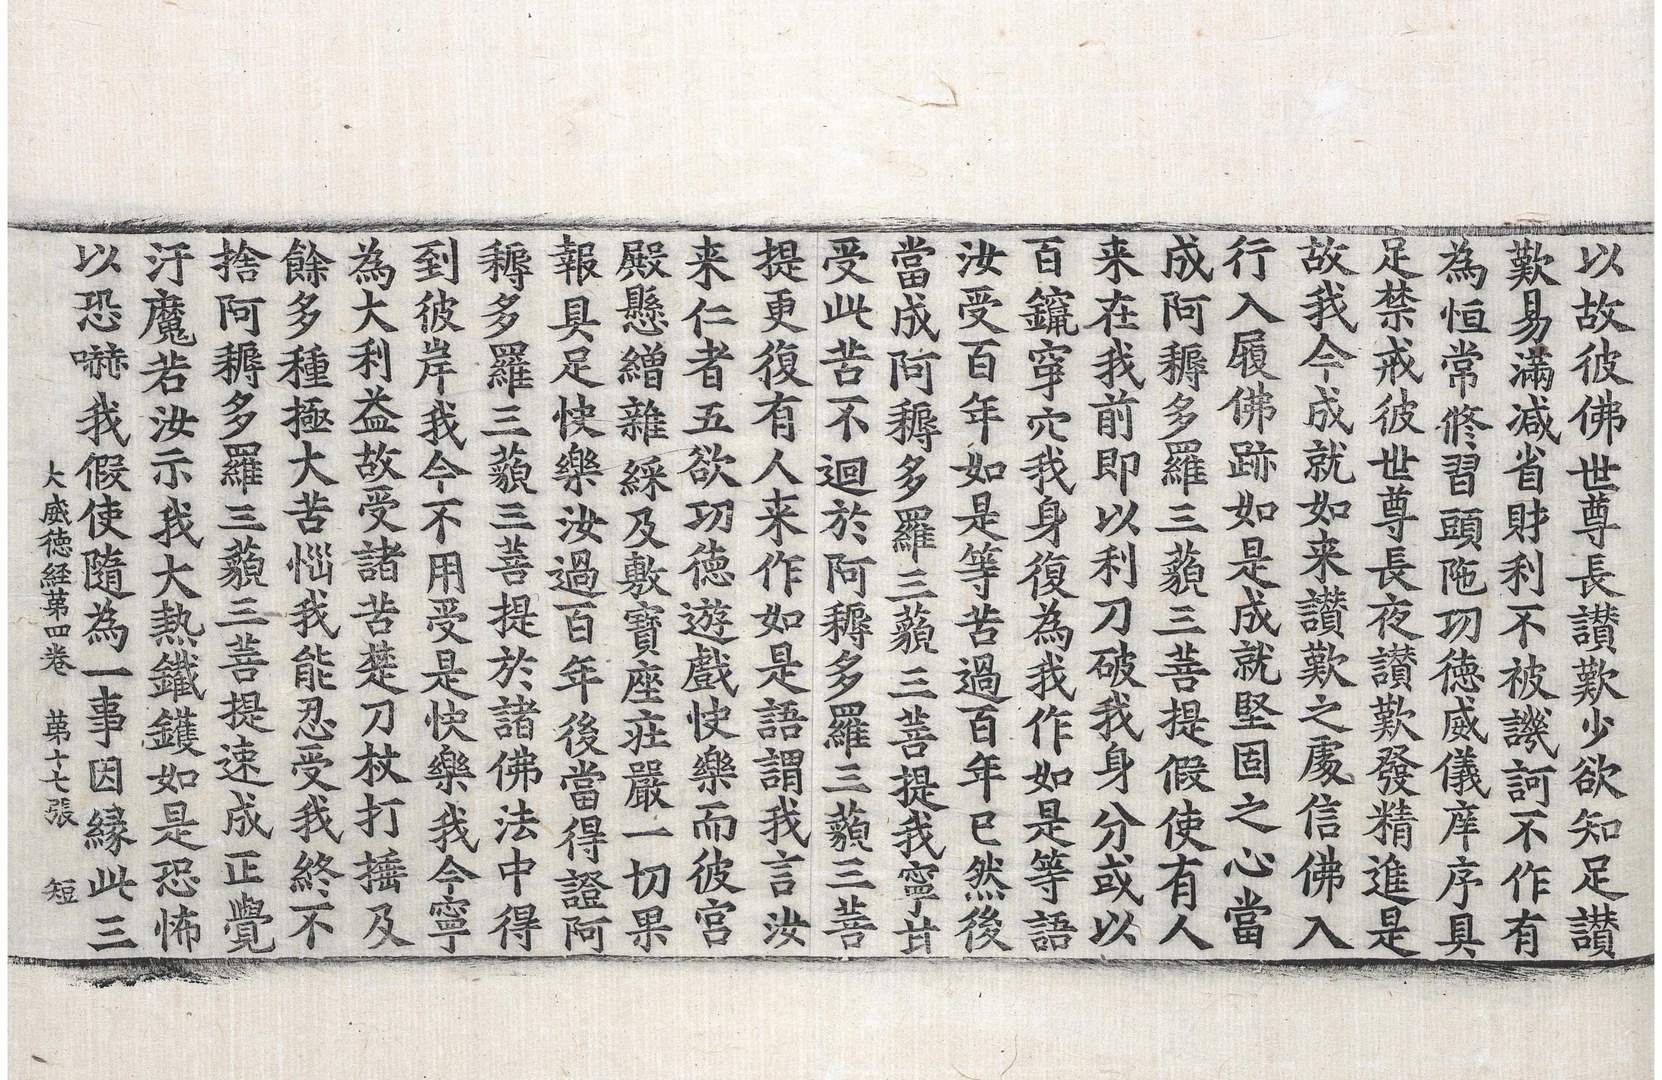 以故彼佛世尊長讃歎少欲知足讃
歎易滿減省財利不被譏訶不作有
為恒常修習頭陁功德威儀庠序具
足禁戒彼世尊長夜讃歎發精進是
故我今成就如来讃歎之處信佛入
行入履佛跡如是成就堅固之心當
成阿耨多羅三藐三菩提假使有人
来在我前即以利刀破我身分或以
百鑹穿穴我身復為我作如是等語
汝受百年如是等苦過百年已然後
當成阿耨多羅三藐三菩提我寧甘
受此苦不迴於阿耨多羅三藐三菩
提更復有人来作如是語謂我言汝
来仁者五欲功德遊戲快樂而彼宮
殿懸繒雜綵及敷寶座莊嚴一切果
報具足快樂汝過百年後當得證阿
耨多羅三藐三菩提於諸佛法中得
到彼岸我今不用受是快樂我今寧
為大利益故受諸苦楚刀杖打捶及
餘多種極大苦惱我能忍受我終不
捨阿耨多羅三藐三菩提速成正覺
汙魔若汝示我大熱鐵鑊如是恐怖
以恐嚇我假使隨為一事因緣此三
大威德経第四卷　第十七張　短